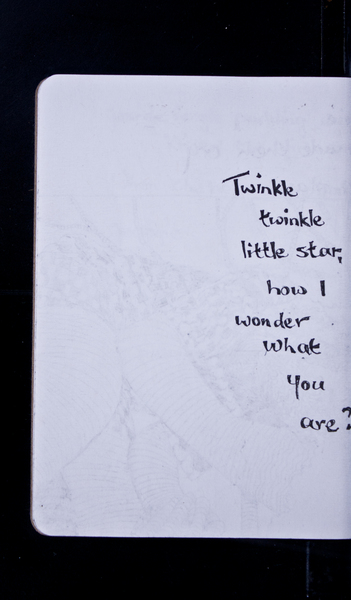 Twinkle
twinkle
little star,
how I
wonder
what
you
are?